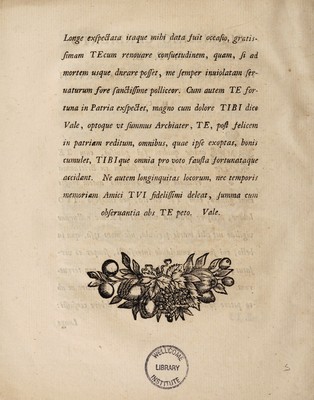 Longe exſpectata itaque mihi data fuit occaſio, gratis-
ſimam TEcum renouare conſuetudinem, quam, ſi ad
mortem usque durare poſſet, me ſemper inuiolatam ſer-
uaturum fore ſanctiſſime polliceor. Cum autem TE for-
tuna in Patria exſpectet, magno cum dolore TIBI dico
Vale, optoque vt ſummus Archiater, TE, poſt felicem
in patriam reditum, omnibus, quae ipſe exoptas, bonis
cumulet, TIBIque omnia pro voto fauſta fortunataque
accidant. Ne autem longinquitas locorum, nec temporis
memoriam Amici TVI fideliſſimi deleat, ſumma cum
obſeruantia abs TE peto. Vale.
WELLCOME
LIBRARY
INSTITUTE